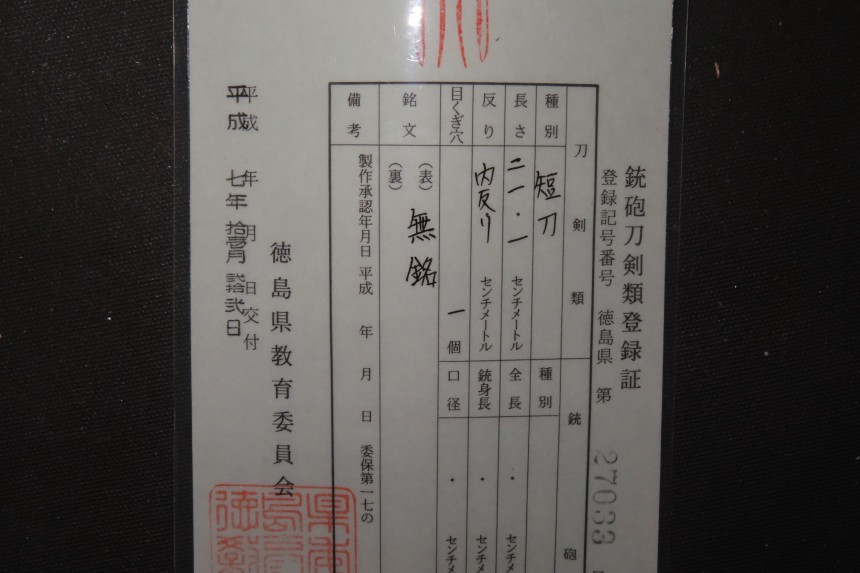 銃砲刀剣類登録証
登録記号番号 徳島県 第 27033
刀剣類
種別 短刀
長さ 二一・一 センチメートル
反り 内反り センチメートル
目くぎ穴 一 個
銘文 (表) 無銘
(裏)
備考 製作承認年月日 平成 年 月 日 委保第一七の
銃砲
種別
全長 ・ センチメ
銃身長 ・ センチメ
口径 ・ センチメ
徳島県教育委員会
平成 年 月 日交付
平成 七年 拾壱月 弐拾弐日